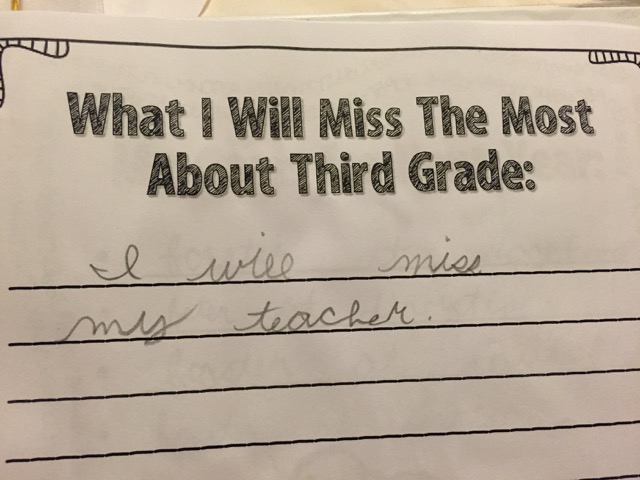 What I Will Miss The Most
About Third Grade:
I will miss
my teacher.